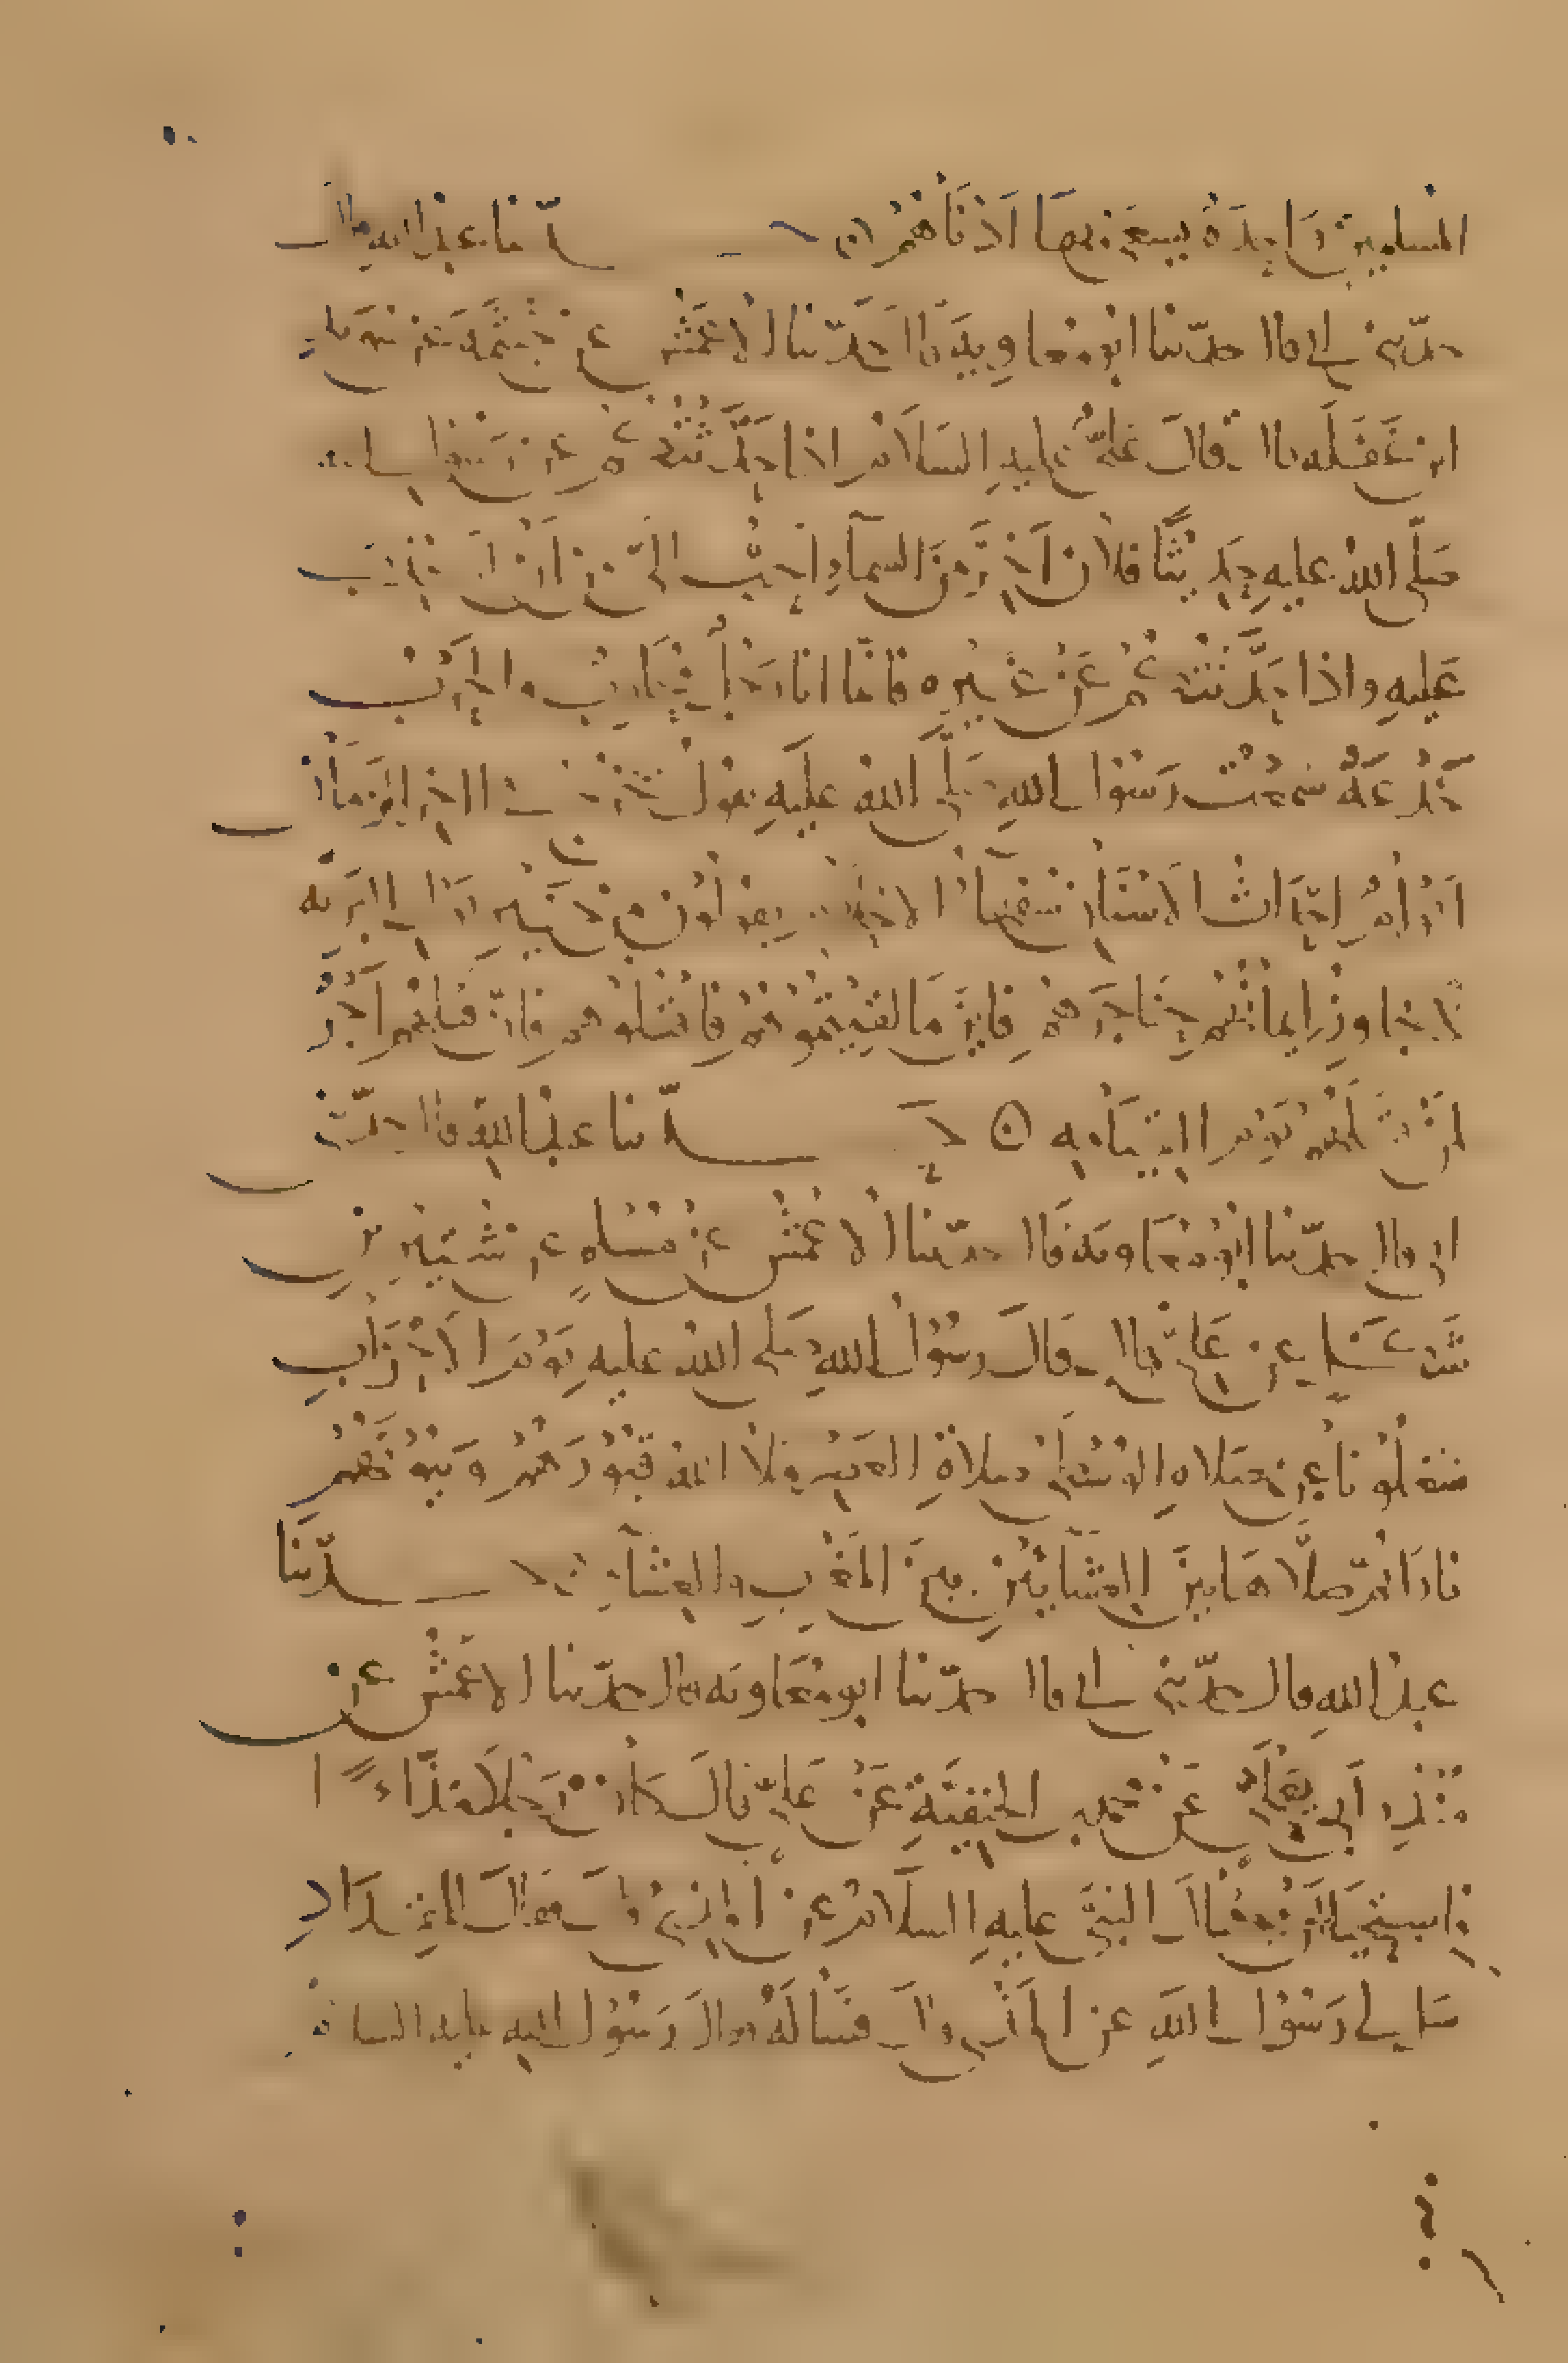 المسلمين واحدة يسعى بها ادناهم حدثنا عبد الله قال
حدثني ابي قال حدثنا ابو معاوية قال حدثنا الاعمش عن خيثمة عن سويد
ابن غفلة قال قال علي عليه السلام اذا حدثتكم عن رسول الله
صلى الله عليه حديثا فلان اخر من السماء احب الي من ان اكذب
عليه واذا حدثتكم عن غيره فانما انا رجل محارب والحرب
خدعة سمعت رسول الله صلى الله عليه يقول يخرج في اخر الزمان
احداث الاسنان سفهاء الاحلام يقولون من خير قول البرية
لا يجاوز ايمانهم حناجرهم فاين ما لقيتموهم فاقتلوهم فان قتلهم اجر
لمن قتلهم يوم القيامه ۞ حدثنا عبد الله قال حدثني
ابي قال حدثنا ابو معاوية قال حدثنا الاعمش عن مسلم عن شتير بن
شكل عن علي قال قال رسول الله صلى الله عليه يوم الاحزاب
شغلونا عن صلاه الوسطى صلاة العصر ملا الله قبورهم وبيوتهم
نارا ثم صلاها بين العشايين بين المغرب والعشاء حدثنا
عبد الله قال حدثني ابي قال حدثنا ابو معاوية قال حدثنا الاعمش عن
منذر ابي يعلى عن محمد بن الحنفية عن علي قال كان رجلا مذاءً
يستحيي ان يسال النبي عليه السلام عن المذي قال فقال للمقداد
سل لي رسول الله عن المذي قال فساله فقال رسول الله عليه السلام